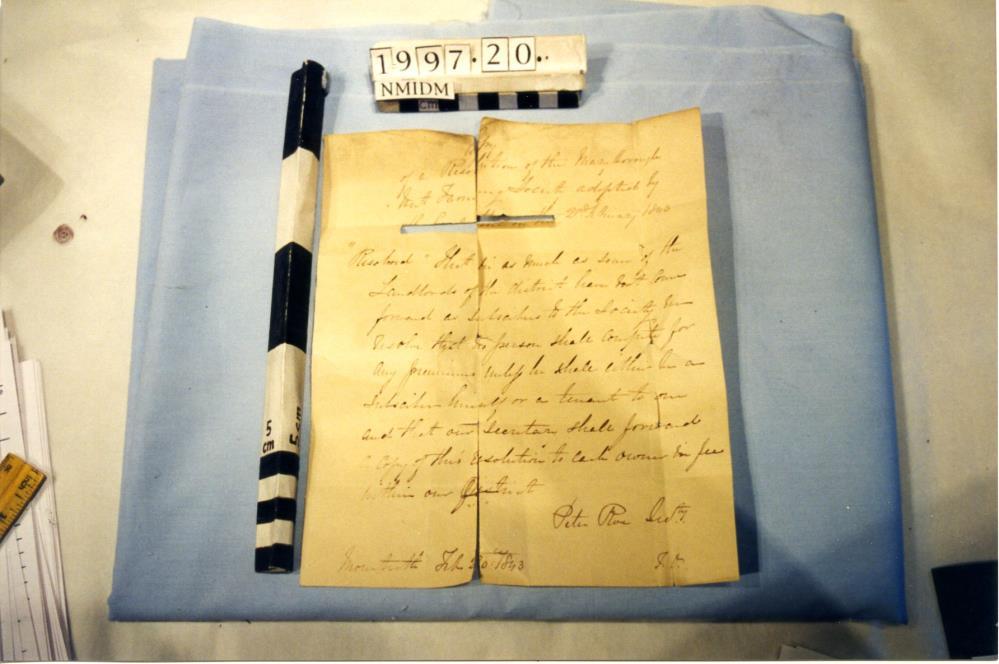 1997.20..
NMIDM
cm
Copy
of a Resolution of the Maryborough
Farming Society adopted by
the
"Resolved" That in as much as some of the
Landlords of the district have not come
forward as Subscribers to the Society we
resolve that no person shall compete for
any premiums unless he shall either be a
Subscriber himself or a tenant to one
and that our Secretary shall forward
a Copy of this resolution to each owner in fee
within our District
Peter Roe Secty.
Mountrath Feb 20th 1843
5
cm
5 cm